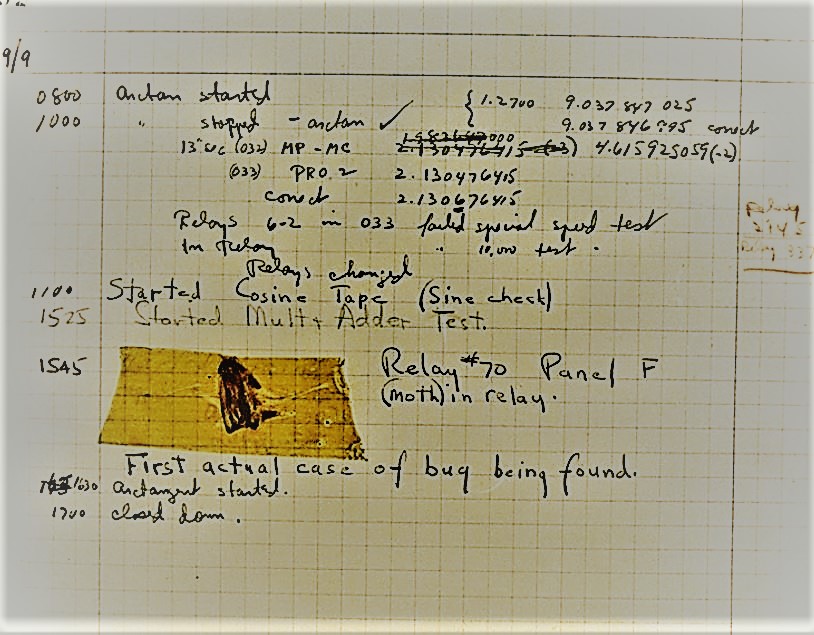 9/9
0800 arctan started { 1.2700 9.037 847 025
1000 " stopped - arctan ✓ 9.037 846 995 correct
13" uc (032) MP - MC 2.130476415 (-3) 4.615925059(-2)
(033) PRO 2 2.130476415
correct 2.130676415
Relays 6-2 in 033 failed special speed test
In Relay " 10,000 test .
Relays changed
1100 Started Cosine Tape (Sine check)
1525 Started Mult + Adder Test.
1545 Relay #70 Panel F
(moth) in relay.
First actual case of bug being found.
1630 arctangent started.
1700 closed down .
Relay
2145
Relay 337